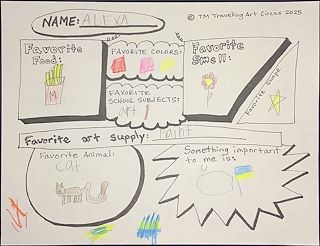 © TM Traveling Art Circus 2025
NAME: ALEXA
Favorite
Food:
M
FAVORITE COLORS:
Favorite
Smell:
FAVORITE
SCHOOL SUBJECTS:
art
Favorite Shape
Favorite art supply: Paint
Favorite Animal:
cat
Something important
to me is: